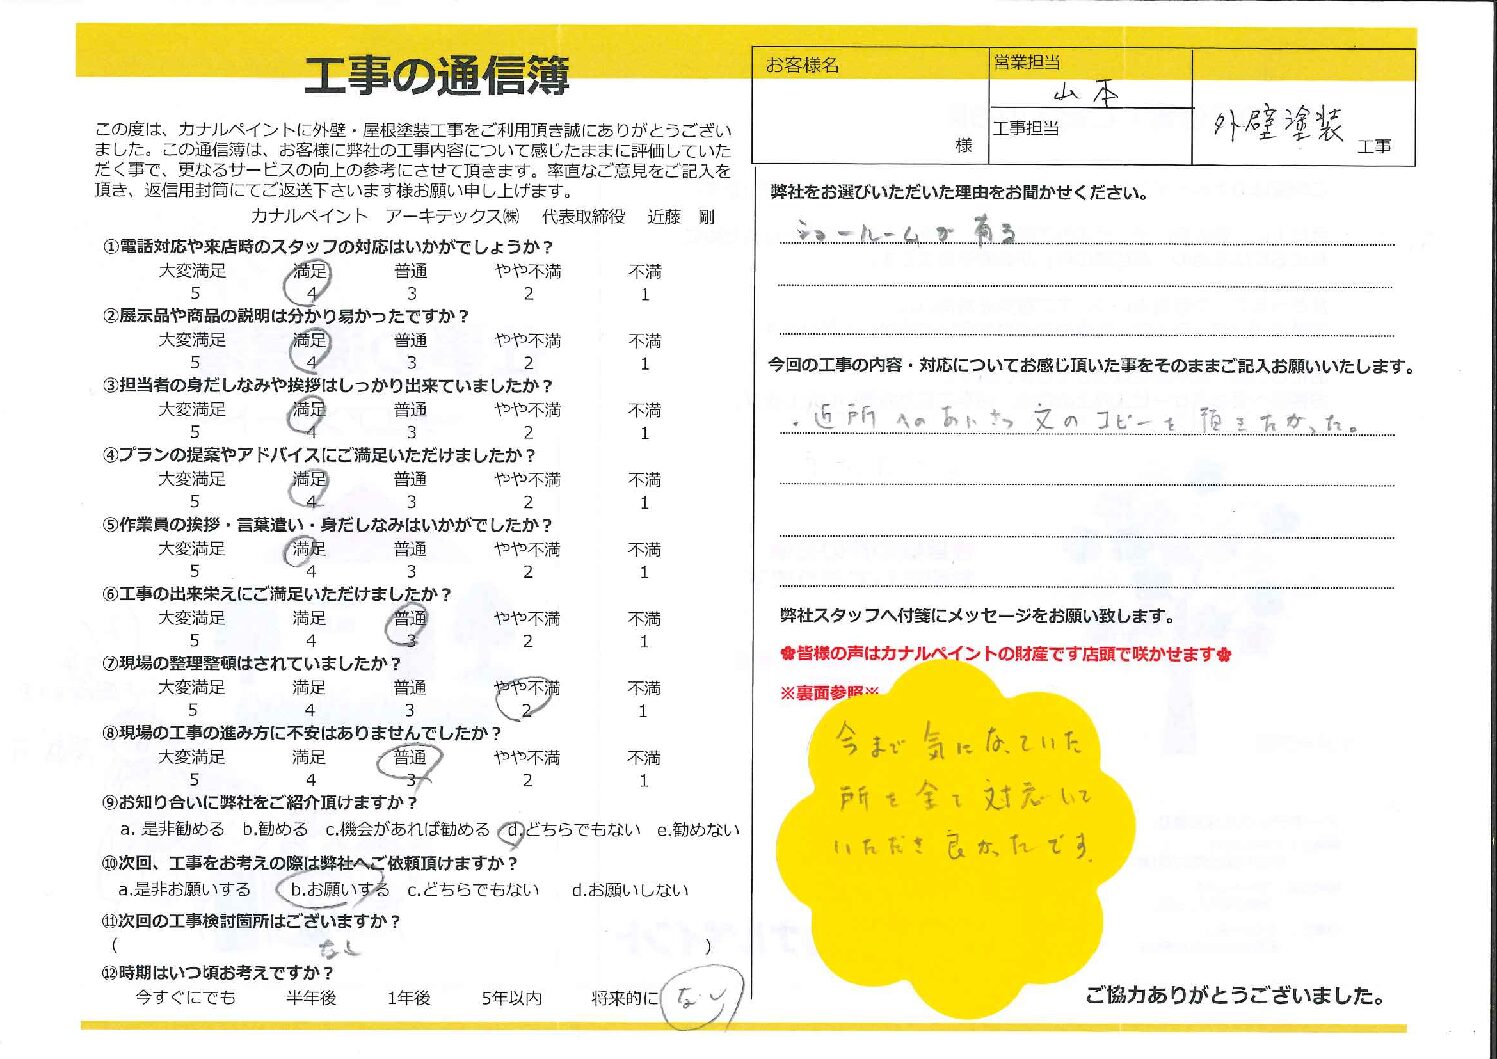 工事の通信簿
この度は、カナルペイントに外壁・屋根塗装工事をご利用頂き誠にありがとうござい
ました。この通信簿は、お客様に弊社の工事内容について感じたままに評価していた
だく事で、更なるサービスの向上の参考にさせて頂きます。率直なご意見をご記入を
頂き、返信用封筒にてご返送下さいます様お願い申し上げます。
カナルペイント アーキテックス㈱ 代表取締役 近藤 剛
①電話対応や来店時のスタッフの対応はいかがでしょうか？
大変満足 満足 普通 やや不満 不満
5 4 3 2 1
②展示品や商品の説明は分かり易かったですか？
大変満足 満足 普通 やや不満 不満
5 4 3 2 1
③担当者の身だしなみや挨拶はしっかり出来ていましたか？
大変満足 満足 普通 やや不満 不満
5 4 3 2 1
④プランの提案やアドバイスにご満足いただけましたか？
大変満足 満足 普通 やや不満 不満
5 4 3 2 1
⑤作業員の挨拶・言葉遣い・身だしなみはいかがでしたか？
大変満足 満足 普通 やや不満 不満
5 4 3 2 1
⑥工事の出来栄えにご満足いただけましたか？
大変満足 満足 普通 やや不満 不満
5 4 3 2 1
⑦現場の整理整頓はされていましたか？
大変満足 満足 普通 やや不満 不満
5 4 3 2 1
⑧現場の工事の進み方に不安はありませんでしたか？
大変満足 満足 普通 やや不満 不満
5 4 3 2 1
⑨お知り合いに弊社をご紹介頂けますか？
a. 是非勧める b.勧める c.機会があれば勧める d.どちらでもない e.勧めない
⑩次回、工事をお考えの際は弊社へご依頼頂けますか？
a.是非お願いする b.お願いする c.どちらでもない d.お願いしない
⑪次回の工事検討箇所はございますか？
( なし )
⑫時期はいつ頃お考えですか？
今すぐにでも 半年後 1年後 5年以内 将来的に ない
お客様名
様
営業担当
山本
工事担当
外壁塗装
工事
弊社をお選びいただいた理由をお聞かせください。
ショールームが有る
今回の工事の内容・対応についてお感じ頂いた事をそのままご記入お願いいたします。
・近所へのあいさつ文のコピーを頂きたかった。
弊社スタッフへ付箋にメッセージをお願い致します。
✿皆様の声はカナルペイントの財産です店頭で咲かせます✿
※裏面参照※
今まで気になっていた
所を全て対応して
いただき良かったです。
ご協力ありがとうございました。